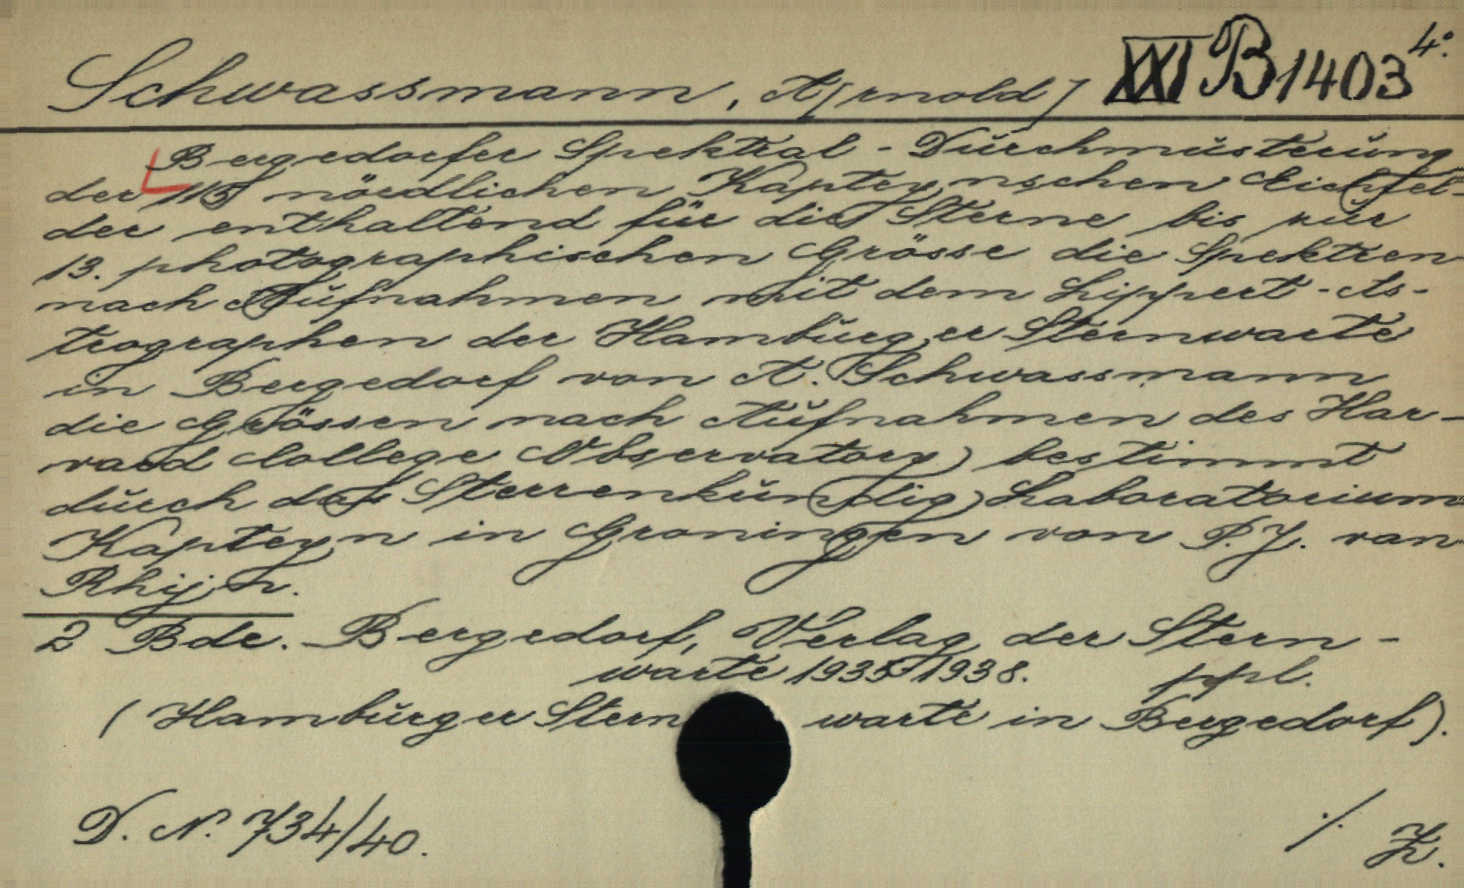 Schwassmann, A[rnold] XXI B 1403 4°.
Bergedorfer Spektral-Durchmusterung
der 115 nördlichen Kapteynschen Eichfel-
der enthaltend für die Sterne bis zur
13. photographischen Grösse die Spektren
nach Aufnahmen mit dem Lippert-As-
trographen der Hamburger Sternwarte
in Bergedorf von A. Schwassmann
die Grössen nach Aufnahmen des Har-
vard College Observatory bestimmt
durch das Sterrenkundig Laboratorium
Kapteyn in Groningen von P.J. van
Rhijn.
2 Bde. Bergedorf, Verlag der Stern-
warte 1935-1938. ppl.
(Hamburger Sternwarte in Bergedorf).
D. N. 734/40. ./. K.